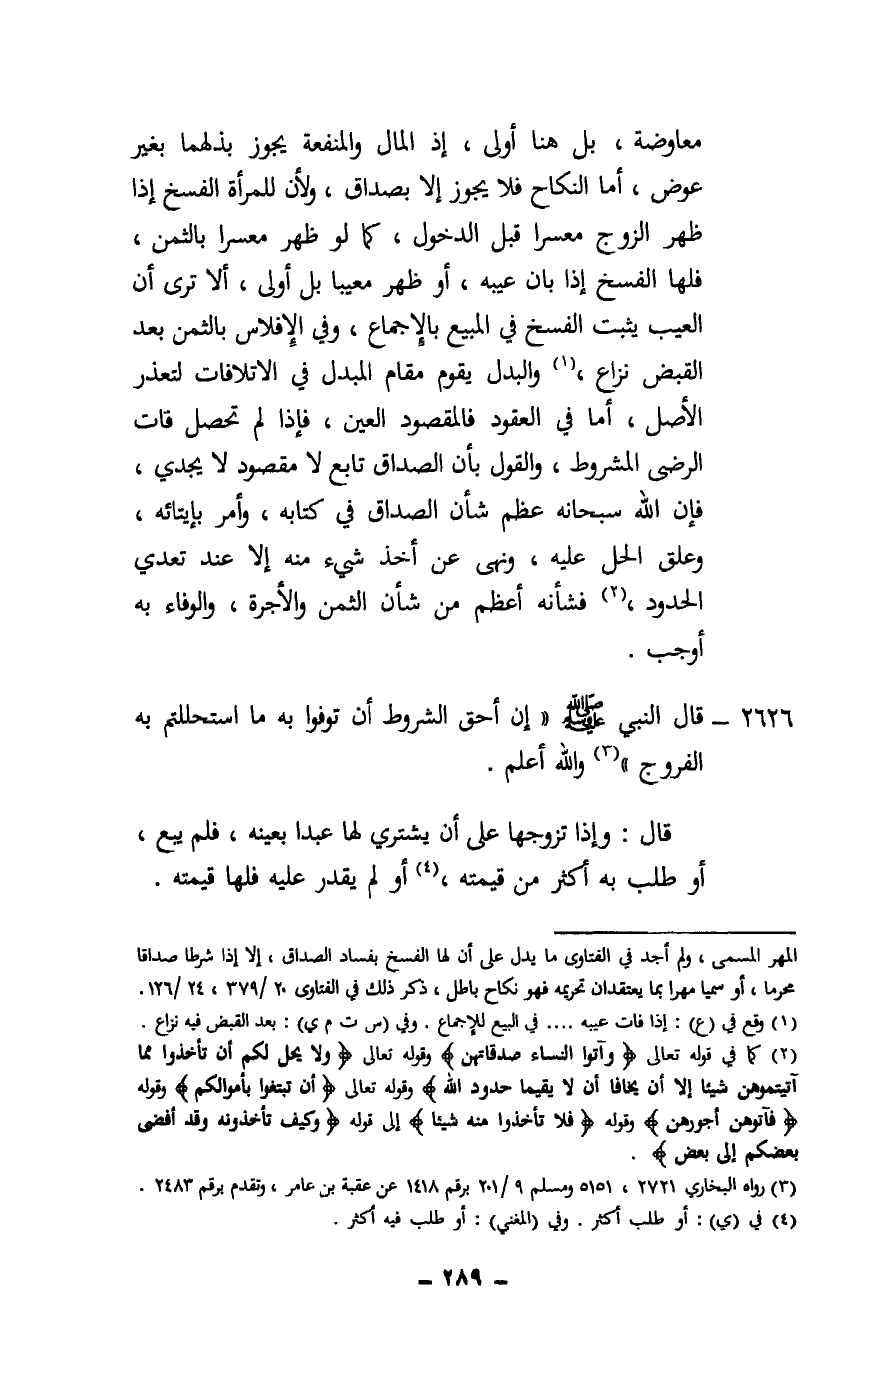 معاوضة ، بل هنا أولى ، إذ المال والمنفعة يجوز بذلهما بغير
عوض ، أما النكاح فلا يجوز إلا بصداق ، ولأن للمرأة الفسخ إذا
ظهر الزوج معسرا قبل الدخول ، كما لو ظهر معسرا بالثمن ،
فلها الفسخ إذا بان عيبه ، أو ظهر معيبا بل أولى ، ألا ترى أن
العيب يثبت الفسخ في المبيع بالإجماع ، وفي الإفلاس بالثمن بعد
القبض نزاع ،(١) والبدل يقوم مقام المبدل في الاتلافات لتعذر
الأصل ، أما في العقود فالمقصود العين ، فإذا لم تحصل فات
الرضى المشروط ، والقول بأن الصداق تابع لا مقصود لا يجدي ،
فإن الله سبحانه عظم شأن الصداق في كتابه ، وأمر بإيتائه ،
وعلق الحل عليه ، ونهى عن أخذ شيء منه إلا عند تعدي
الحدود ،(٢) فشأنه أعظم من شأن الثمن والأجرة ، والوفاء به
أوجب .
٢٦٢٦ ـ قال النبي ﷺ « إن أحق الشروط أن توفوا به ما استحللتم به
الفروج »(٣) والله أعلم .
قال : وإذا تزوجها على أن يشتري لها عبدا بعينه ، فلم يبع ،
أو طلب به أكثر من قيمته ،(٤) أو لم يقدر عليه فلها قيمته .
المهر المسمى ، ولم أجد في الفتاوى ما يدل على أن لها الفسخ بفساد الصداق ، إلا إذا شرطا صداقا
محرما ، أو سميا مهرا بما يعتقدان تحريمه فهو نكاح باطل ، ذكر ذلك في الفتاوى ٢٠ /٣٧٩ ، ٢٤ /١٢٦.
(١) وقع في (ع) : إذا فات عيبه .... في البيع للإجماع . وفي (س ت م ي) : بعد القبض فيه نزاع .
(٢) كما في قوله تعالى ﴿ وآتوا النساء صدقاتهن ﴾ وقوله تعالى ﴿ ولا يحل لكم أن تأخذوا مما
آتيتموهن شيئا إلا أن يخافا أن لا يقيما حدود الله ﴾ وقوله تعالى ﴿ أن تبتغوا بأموالكم ﴾ وقوله
﴿ فآتوهن أجورهن ﴾ وقوله ﴿ فلا تأخذوا منه شيئا ﴾ إلى قوله ﴿ وكيف تأخذونه وقد أفضى
بعضكم إلى بعض ﴾ .
(٣) رواه البخاري ٢٧٢١ ، ٥١٥١ ومسلم ٩ /٢٠١ برقم ١٤١٨ عن عقبة بن عامر ، وتقدم برقم ٢٤٨٣ .
(٤) في (ي) : أو طلب أكثر . وفي (المغني) : أو طلب فيه أكثر .
ـ ٢٨٩ ـ